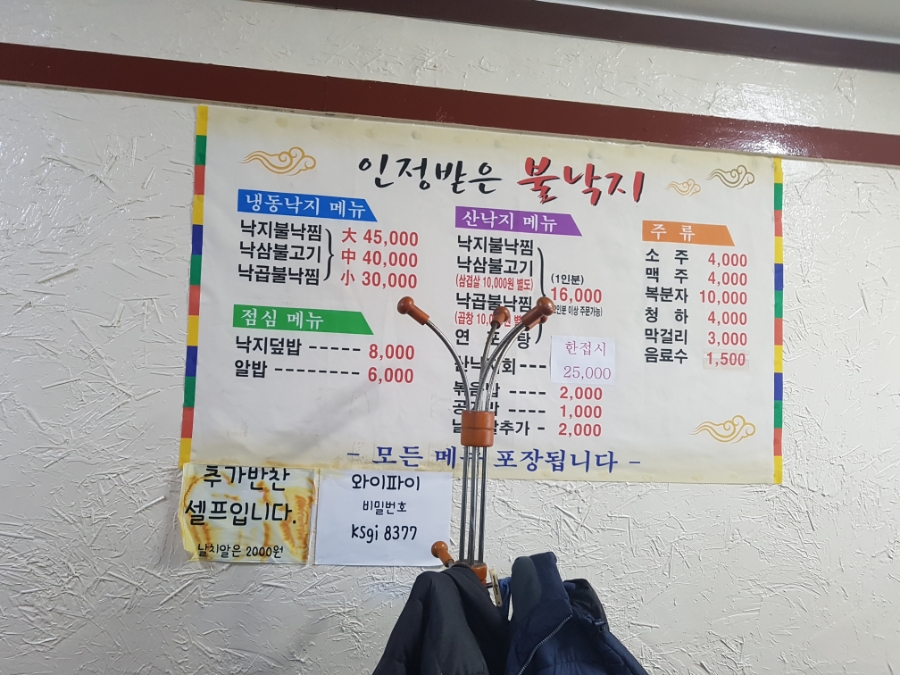 인정받은 불낙지
냉동낙지 메뉴
낙지불낙찜
낙삼불고기
낙곱불낙찜
大 45,000
中 40,000
小 30,000
점심 메뉴
낙지덮밥 ------ 8,000
알밥 --------- 6,000
산낙지 메뉴
낙지불낙찜
낙삼불고기
(삼겹살 10,000원 별도)
낙곱불낙찜
(1인분)
16,000
한접시
25,000
2,000
1,000
추가 - 2,000
주 류
소 주 4,000
맥 주 4,000
복분자 10,000
청 하 4,000
막걸리 3,000
음료수 1,500
- 모든 포장됩니다 -
추가반찬
셀프입니다.
날치알은 2000원
와이파이
비밀번호
ksgi 8377